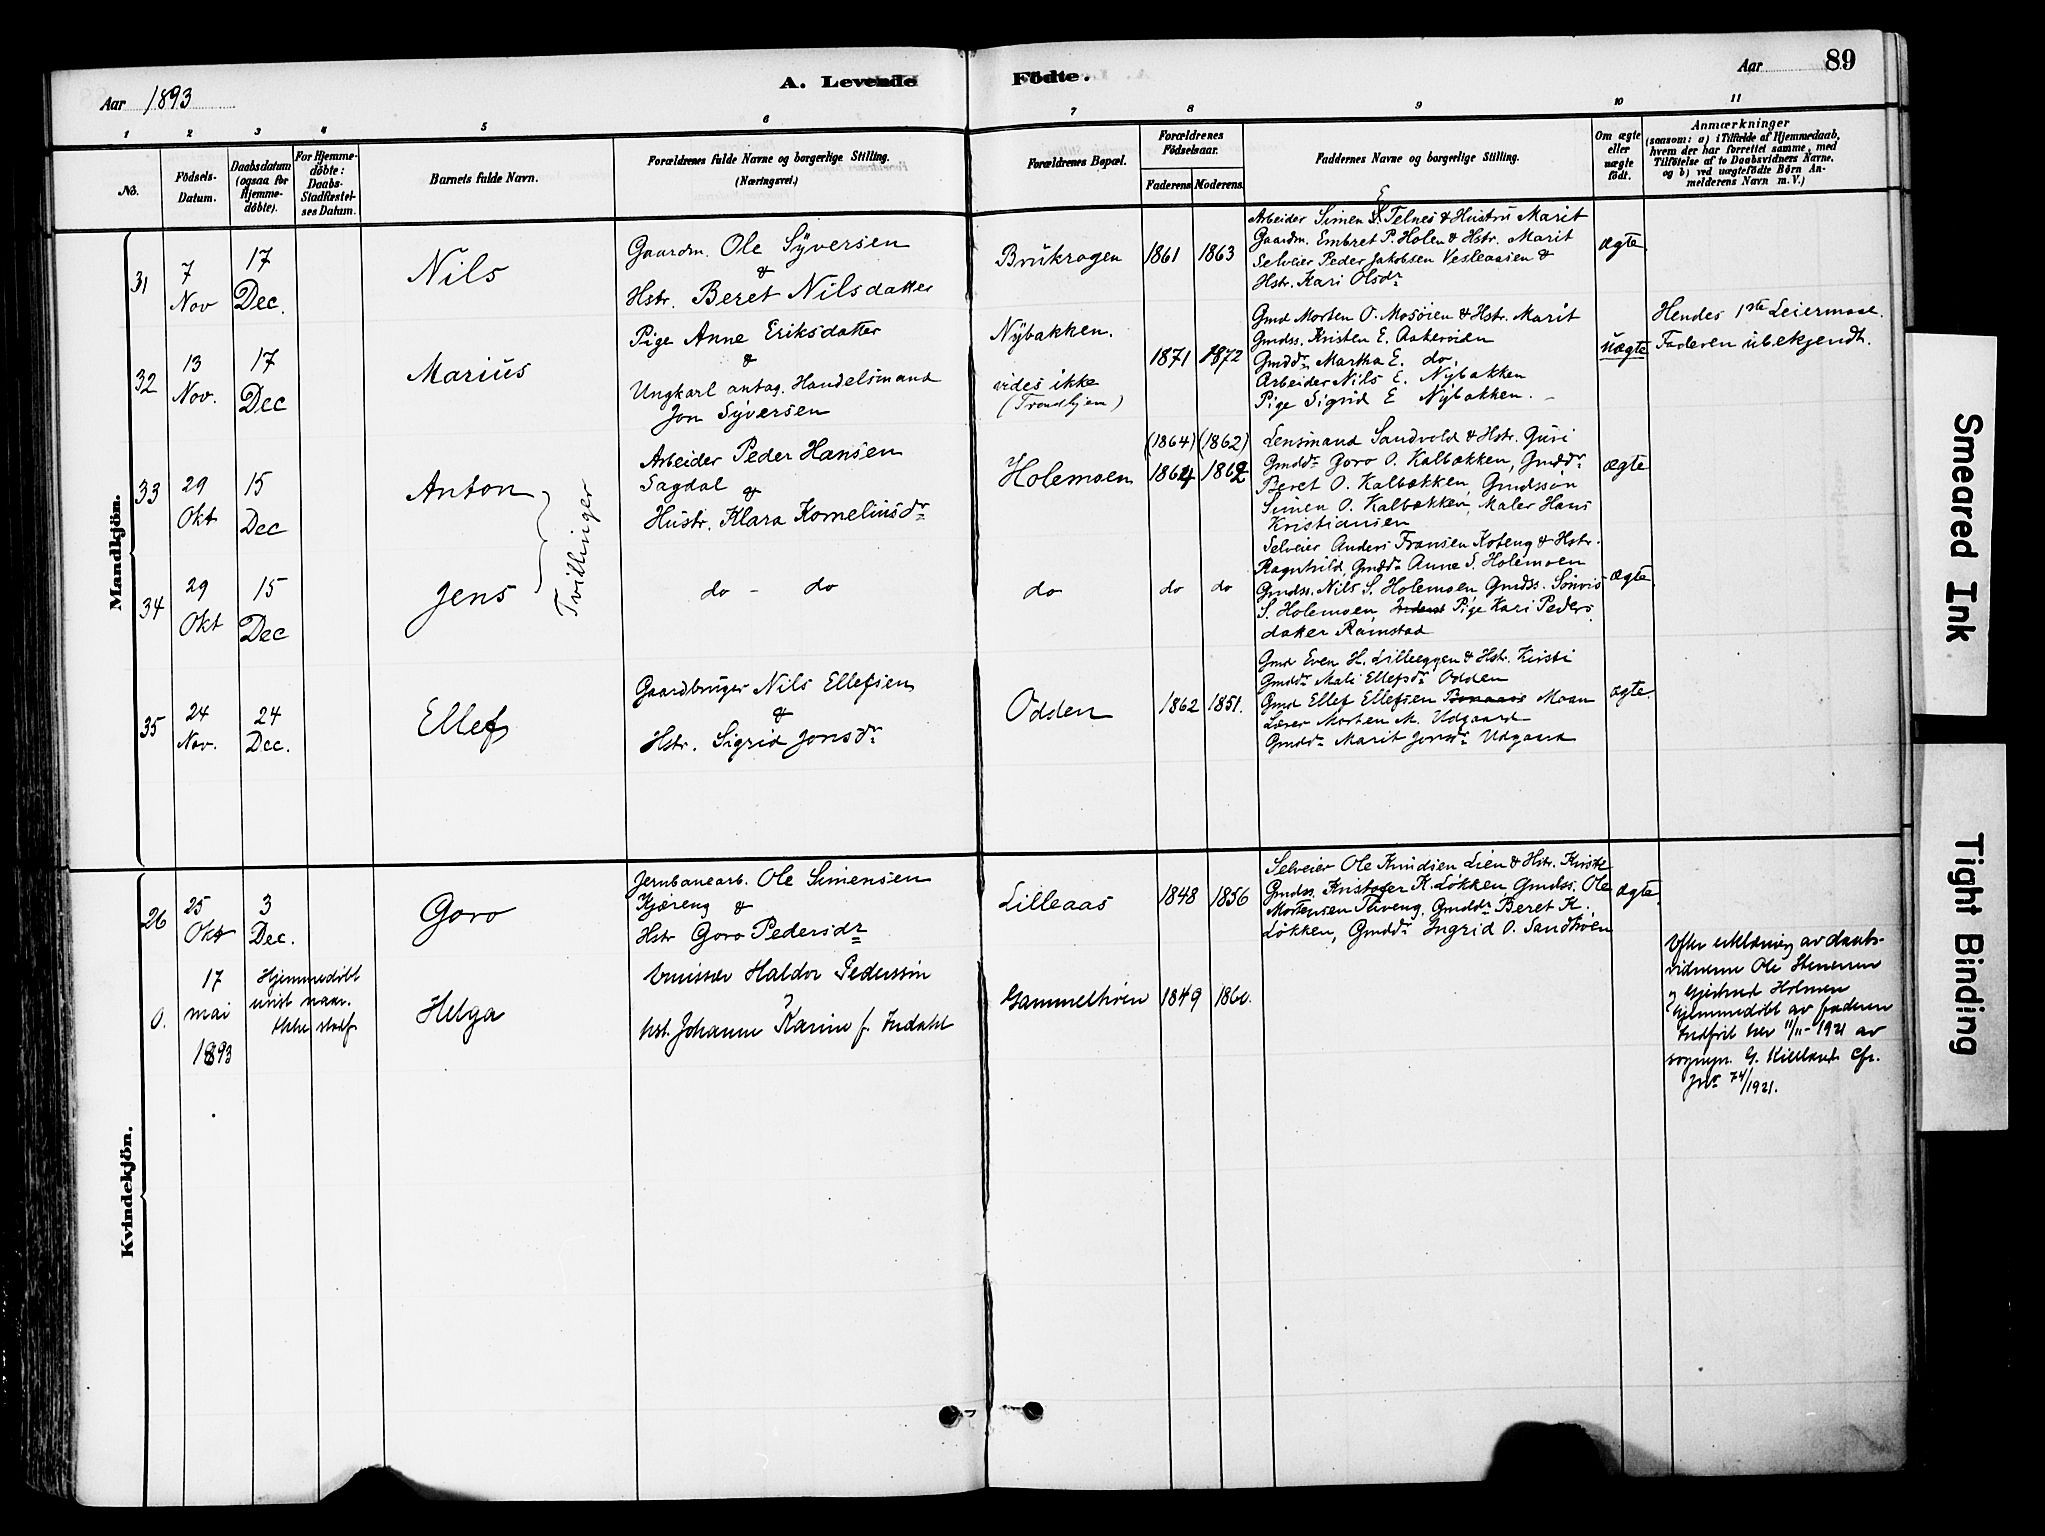 A. Levende Födte.
Aar 1893
Aar 89
1 2 3 4 5 6 7 8 9 10 11
No.
Födsels-Datum.
Daabsdatum (ogsaa for Hjemme-döbte).
For Hjemme-döbte: Daabs-Stadfæstel-ses Datum.
Barnets fulde Navn.
Forældrenes fulde Navne og borgerlige Stilling. (Næringsvei.)
Forældrenes Bopæl.
Forældrenes Födselsaar.
Faderens. Moderens.
Faddernes Navne og borgerlige Stilling.
Om ægte eller uægte födt.
Anmærkninger
(saasom: a) i Tilfælde af Hjemmedaab,
hvem der har forrettet samme, med
Tilföielse af to Daabsvidners Navne,
og b) ved uægtefödte Börn An-
melderens Navn m. V.)
Mandkjön.
31
7 Nov
17 Dec.
Nils
Gaardm. Ole Syversen
&
Hstr. Beret Nilsdatter
Brukrogen
1861 1863
Arbeider Simen E. Telnes & Hustru Marit
Gaardm. Embret P. Holen & Hstr. Marit
Selveier Peder Jakobsen Vesleaasen &
Hstr. Kari Olsdr
ægte
32
13 Nov.
17 Dec
Marius
Pige Anne Eriksdatter
&
Ungkarl antag. Handelsmand
Jon Syversen
Nybakken.
vides ikke
(Trondhjem)
1871 1872
Gmd Morten O. Mosöien & Hstr. Marit
Gmdss. Kristen E. Aaheröien
Gmddr. Martha E. do.
Arbeider Nils E. Nybakken
Pige Sigrid E Nybakken.
uægte
Hendes 1ste Leiermaal.
Faderen ubekjendt.
33
29 Okt
15 Dec
Anton
Tvillinger
Arbeider Peder Hansen
Sagdal
&
Hustr. Klara Korneliusdr
Holemoen
(1864) (1862)
1864 1862
Lensmand Sandvold & Hstr. Guri
Gmddr Goro O. Kalbækken, Gmddr
Beret O. Kalbækken, Gmdsson
Simen O. Kalbækken, Maler Hans
Kristiansen
ægte
34
29 Okt
15 Dec
Jens
do - do
do
do do
Selveier Anders Fransen Koteng & Hstr.
Ragnhild, Gmddr Anne S. Holemoen
Gmdss. Nils S. Holemoen Gmdss. Sönvis
S. Holemoen, Pige Kari Peders
datter Ramstad
ægte
35
24 Nov.
24 Dec.
Ellef
Gaardbruger Nils Ellefsen
&
Hstr. Sigrid Jonsdr
Odden
1862 1851.
Gmd Even H. Lilleeggen & Hstr. Kirsti
Gmddr Mali Ellefsdr Odden
Gmd Ellef Ellefsen Moan
Lærer Morten M. Udgaard
Gmddr Marit Jonsdr Udgaard
ægte
Kvindekjön.
26
25 Okt
3 Dec.
Goro
Jernbanearb. Ole Simensen
Kjæreng &
Hstr Goro Pedersdr
Lilleaas
1848 1856
Selveier Ole Knudsen Lien & Hstr. Kirsti
Gmdss. Kristofer K. Løkken, Gmdss. Ole
Mortensen Fliveng, Gmddr Beret K.
Løkken, Gmddr Ingrid O. Sandtröen
ægte.
0.
17 mai 1893
Hjemmedöbt
uvist naar.
Ikke stadf.
Helga
Emissær Haldor Pederssön
&
hst. Johanne Karine f. Indahl
Gammeltröen
1849 1860.
Efter erklæring av daabs-
vidnerne Ole Stenersen
og Gjertrud Holmen
hjemmedöbt av faderen
Indfört her 11/11-1921 av
sognepr. G. Kielland cfr.
Jnr 74/1921.
Smeared Ink
Tight Binding